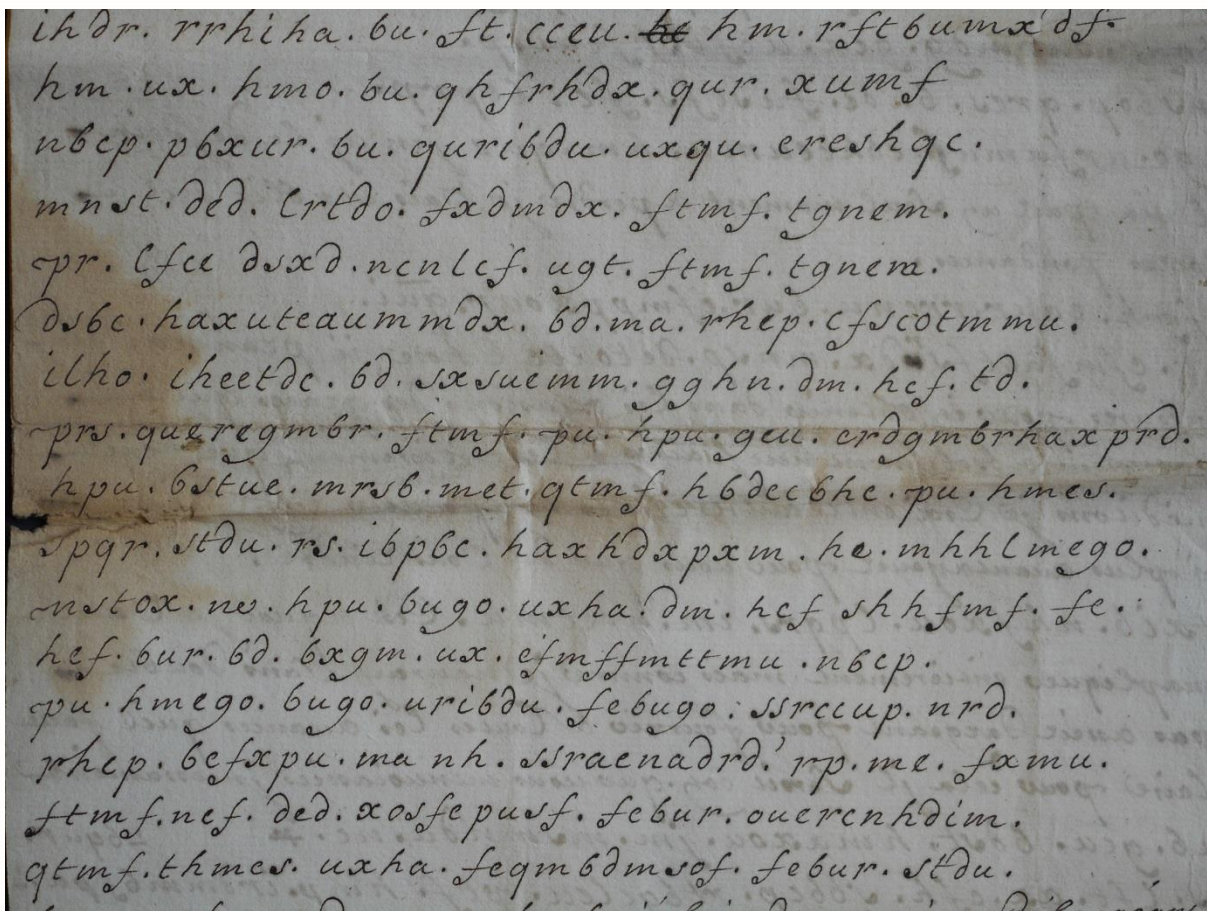 ihdr. rrhiha. bu. ft. cceu. hm. rftbumx df.
hm. ux. hmo. bu. qhfrhdx. qur. xumf
nbcp. pbxur. bu. quribdu. uxqu. ereshqc.
mnst. ded. lrtdo. fxdmdx. ftmf. tgnem.
pr. lfce dsxd. ncnlcf. ugt. ftmf. tgnem.
dsbc. haxuteaummdx. bd. ma. rhep. cfscotmmu.
ilho. iheetdc. bd. sxsuemm. gghn. dm. hcf. td.
prs. queregmbr. ftmf. pu. hpu. geu. erdgmbrhax prd.
hpu. bstue. mrsb. met. qtmf. hbdecbhe. pu. hmes.
spqr. stdu. rs. ibpbc. haxhdxpxm. he. mhhlmego.
nstox. no. hpu. bugo. uxha. dm. hcf shhfmf. fe.
hef. bur. bd. bxgm. ux. efmffmttmu. nbcp.
pu. hmego. bugo. uribdu. febugo. ssrccup. nrd.
rhep. befxpu. ma nh. ssraenadrd. rp. me. fxmu.
ftmf. nef. ded. xosfepusf. febur. ouercnhdim.
qtmf. thmes. uxha. feqmbdmsof. febur. stdu.